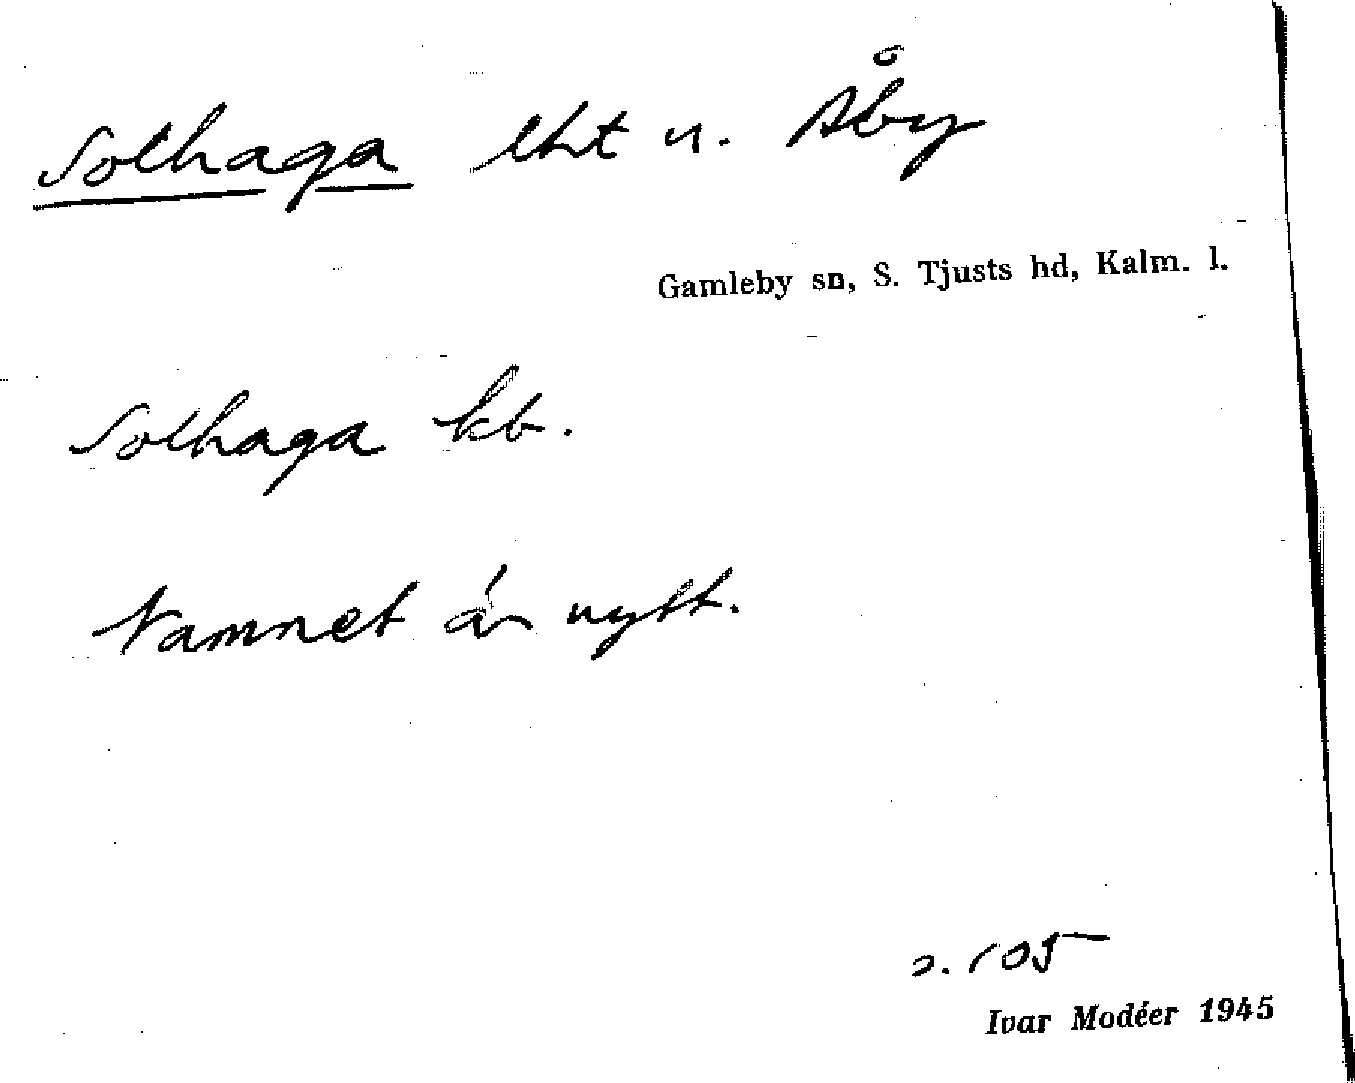 Solhaga lht u. Åby
Gamleby sn, S. Tjusts hd, Kalm. l.
Solhaga kb.
Namnet är nytt.
s. 105
Ivar Modéer 1945